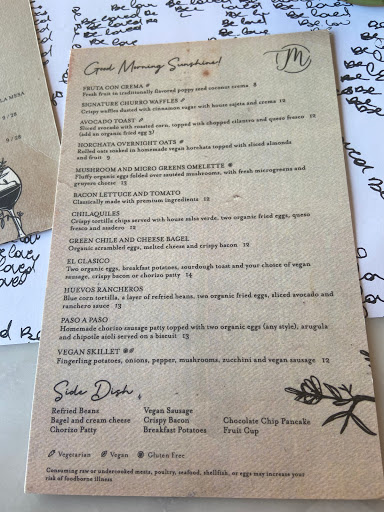 Be loved
LA MESA
9 / 28
9 / 28
Good Morning Sunshine!
M
FRUTA CON CREMA
Fresh fruit in traditionally flavored poppy seed coconut crema 8
SIGNATURE CHURRO WAFFLES
Crispy waffles dusted with cinnamon sugar with house cajeta and crema 12
AVOCADO TOAST
Sliced avocado with roasted corn, topped with chopped cilantro and queso fresco 12
(add an organic fried egg 3)
HORCHATA OVERNIGHT OATS
Rolled oats soaked in homemade vegan horchata topped with sliced almonds
and fruit 9
MUSHROOM AND MICRO GREENS OMELETTE
Fluffy organic eggs folded over sautéed mushrooms, with fresh microgreens and
gruyere cheese 13
BACON LETTUCE AND TOMATO
Classically made with premium ingredients 12
CHILAQUILES
Crispy tortilla chips served with house salsa verde, two organic fried eggs, queso
fresco and asadero 12
GREEN CHILE AND CHEESE BAGEL
Organic scrambled eggs, melted cheese and crispy bacon 12
EL CLASICO
Two organic eggs, breakfast potatoes, sourdough toast and your choice of vegan
sausage, crispy bacon or chorizo patty 14
HUEVOS RANCHEROS
Blue corn tortilla, a layer of refried beans, two organic fried eggs, sliced avocado and
ranchero sauce 13
PASO A PASO
Homemade chorizo sausage patty topped with two organic eggs (any style), arugula
and chipotle aioli served on a biscuit 13
VEGAN SKILLET
Fingerling potatoes, onions, pepper, mushrooms, zucchini and vegan sausage 12
Side Dish
Refried Beans
Bagel and cream cheese
Chorizo Patty
Vegan Sausage
Crispy Bacon
Breakfast Potatoes
Chocolate Chip Pancake
Fruit Cup
Vegetarian Vegan Gluten Free
Consuming raw or undercooked meats, poultry, seafood, shellfish, or eggs may increase your
risk of foodborne illness